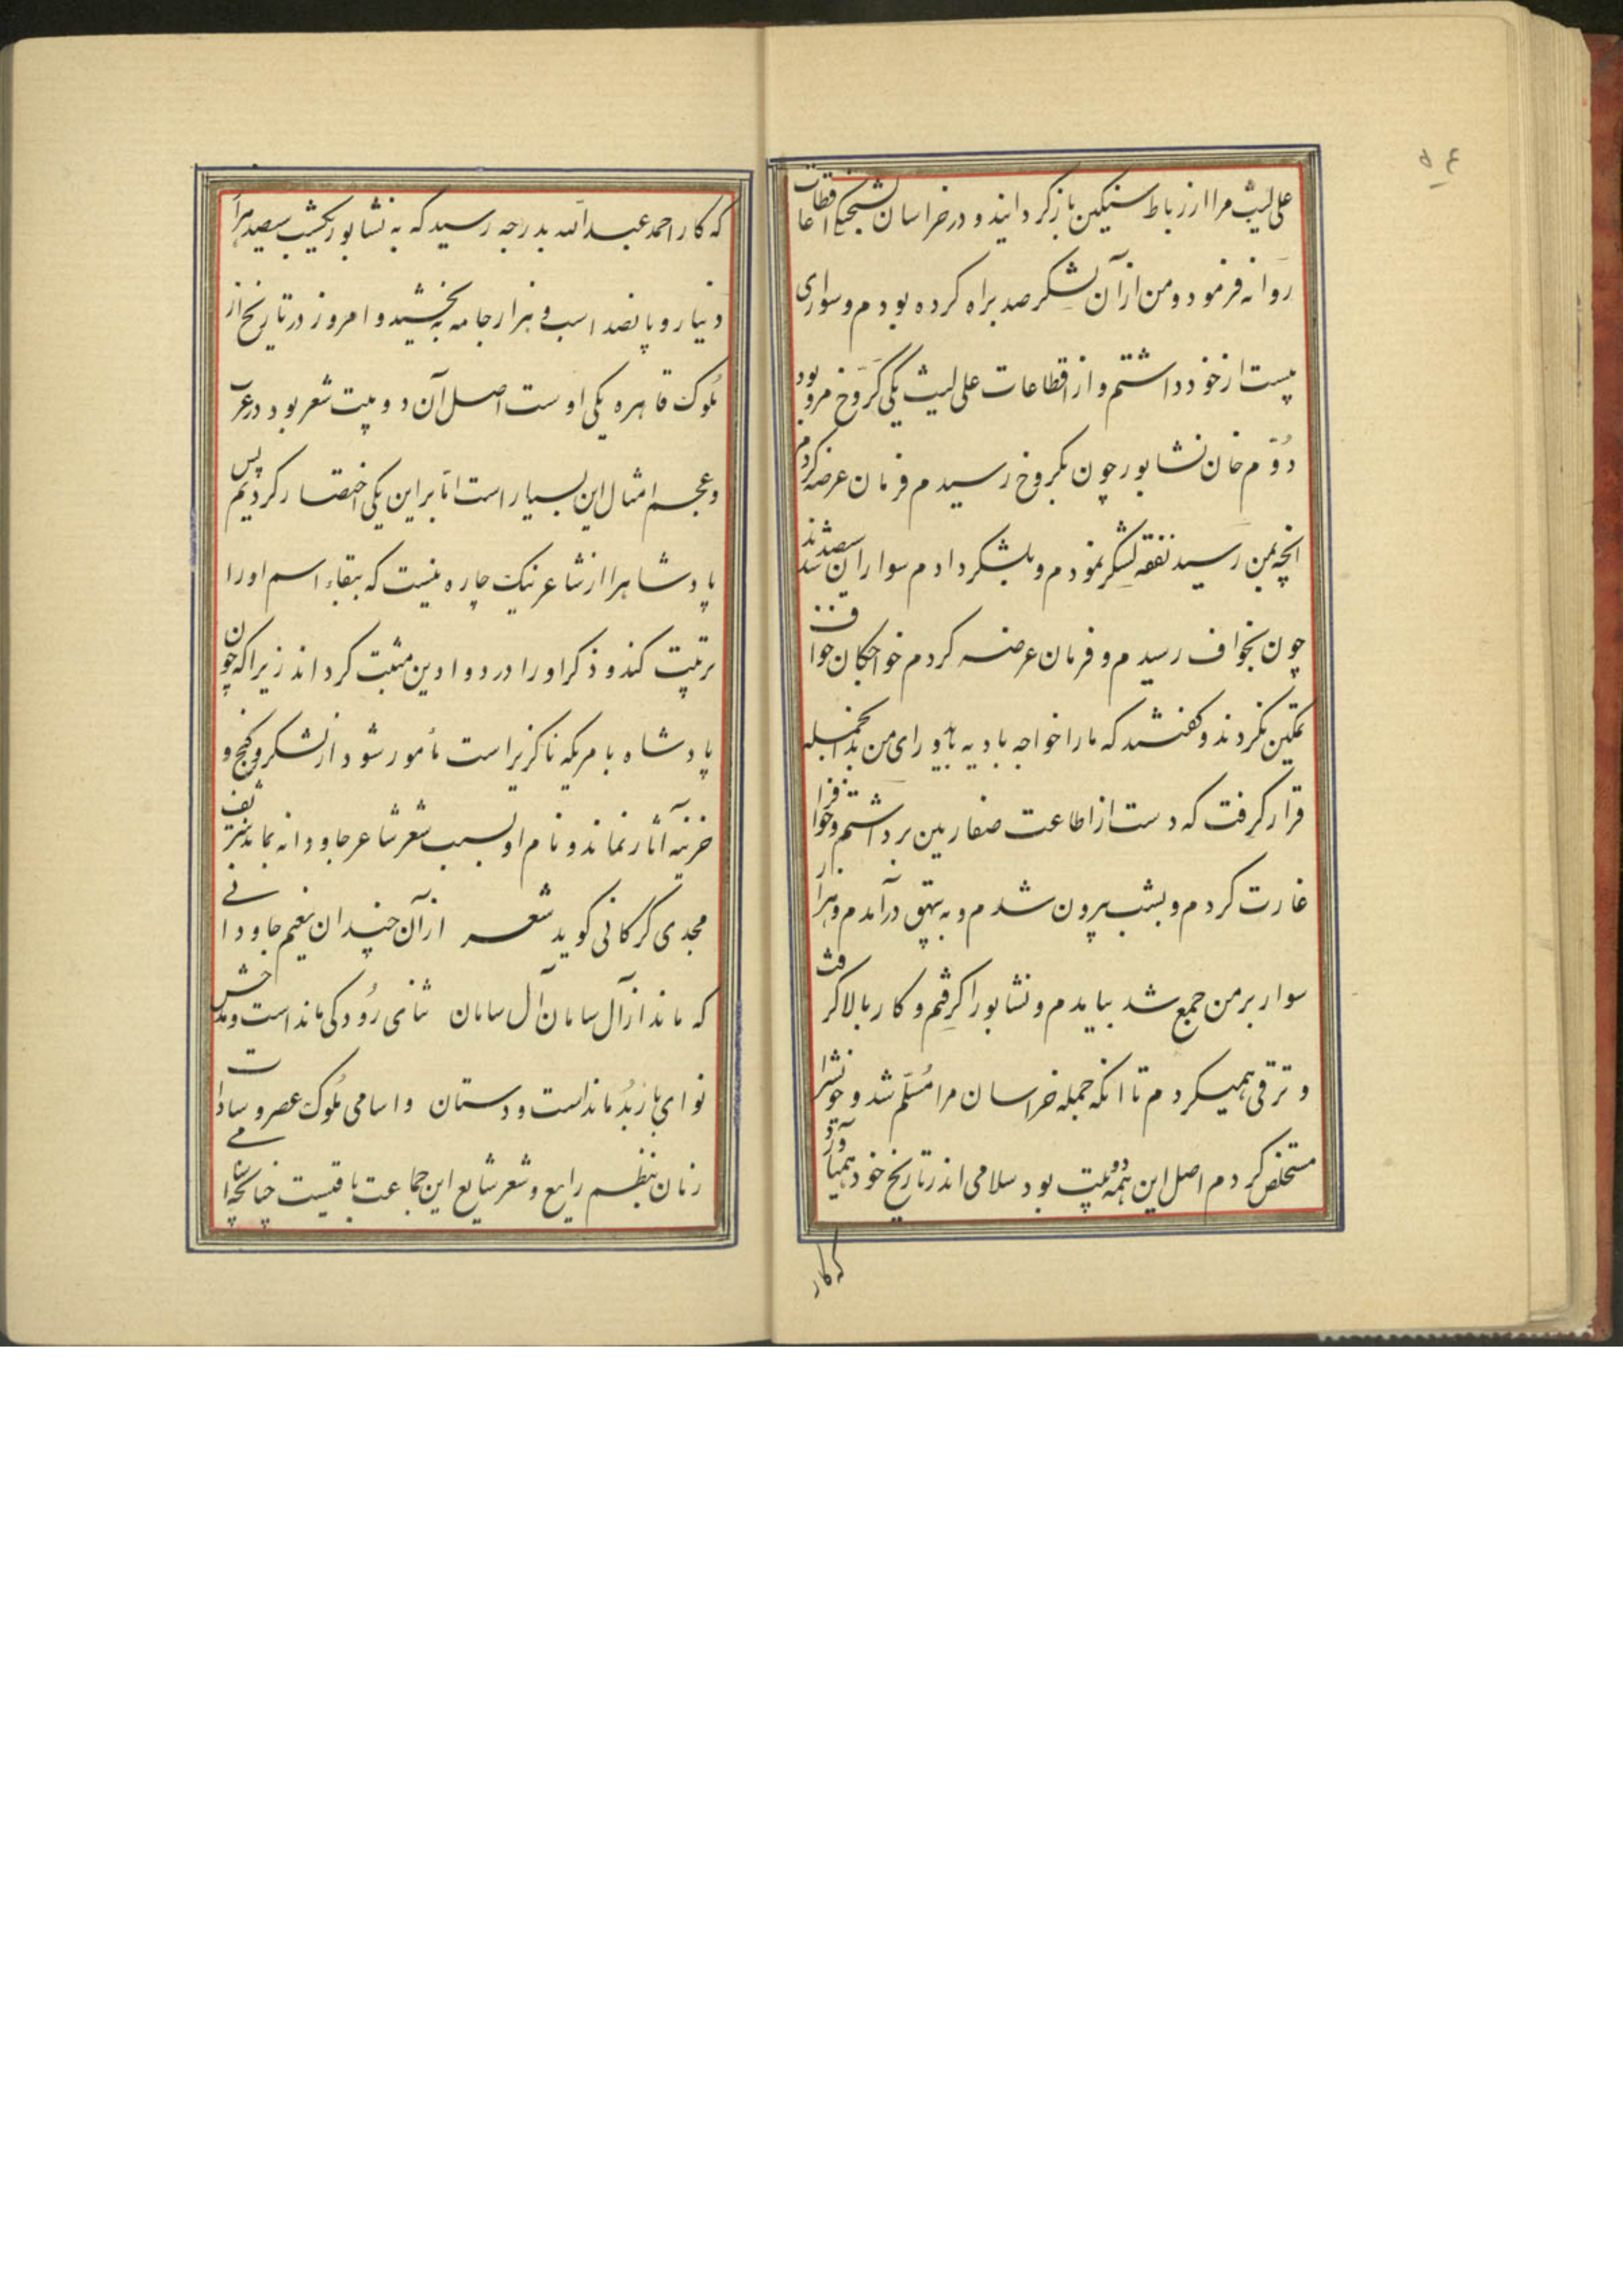 ۵۴
علی لیث مرا از رباط سنگین باز گردانید و در خراسان بشحنگی اقطاعات
روانه فرمود و من از آن لشکر صد براه کرده بودم و سواری
بیست از خود داشتم و از اقطاعات علی لیث یکی کروخ مرو بود
دوّم خان نشابور چون بکروخ رسیدم فرمان عرضه کردم
انچه بمن رسید نفقه لشکر نمودم و بلشکر دادم سواران سیصد شدند
چون بخواف رسیدم و فرمان عرضه کردم خواجگان خواف
تمکین نکردند و گفتند که ما را خواجه باید با رای من بدانجمله
قرار گرفت که دست از اطاعت صفاریین برداشتم و خواف را
غارت کردم و بشب بیرون شدم و به بیهق درآمدم و هزار
سوار بر من جمع شد بیامدم و نشابور را گرفتم و کار بالا گرفت
و ترقی همیکردم تا انکه جمله خراسان مرا مُسَلّم شد و خویشتن را
مستخلص کردم اصل این همه دو بیت بود سلامی اندر تاریخ خود همی آورد
که کار
که کار احمد عبدالله بدرجه رسید که به نشابور یکشب سیصد هزار
دینار و پانصد اسب و هزار جامه به بخشید و امروز در تاریخ از
ملوک قاهره یکی اوست اصل آن دو بیت شعر بود در عرب
و عجم امثال این بسیار است امّا بر این یکی اختصار کردیم پس
پادشاه را از شاعر نیک چاره نیست که ببقاء اسم او را
ترتیب کند و ذکر او را در دواوین مثبت گرداند زیرا که چون
پادشاه بامریکه ناگزیر است مأمور شود از لشکر و گنج و
خزینه آثار نماند و نام او بسبب شعر شاعر جاودانه بماند شریف
مجدی گرگانی گوید شعر از آن چندان نعیم جاودانی
که ماند از آل سامان آل سامان ثنای رودکی ماند است و مدحش
نوای باربُد ماند است و دستان و اسامی ملوک عصر و سادات
زمان بنظم رایع و شعر شایع این جماعت باقیست چنانچه اسامی